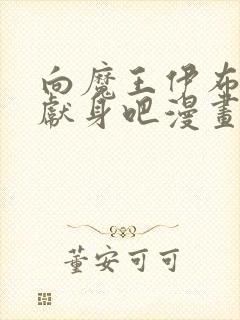 向魔王伊布
獻身吧漫畫
董安可可